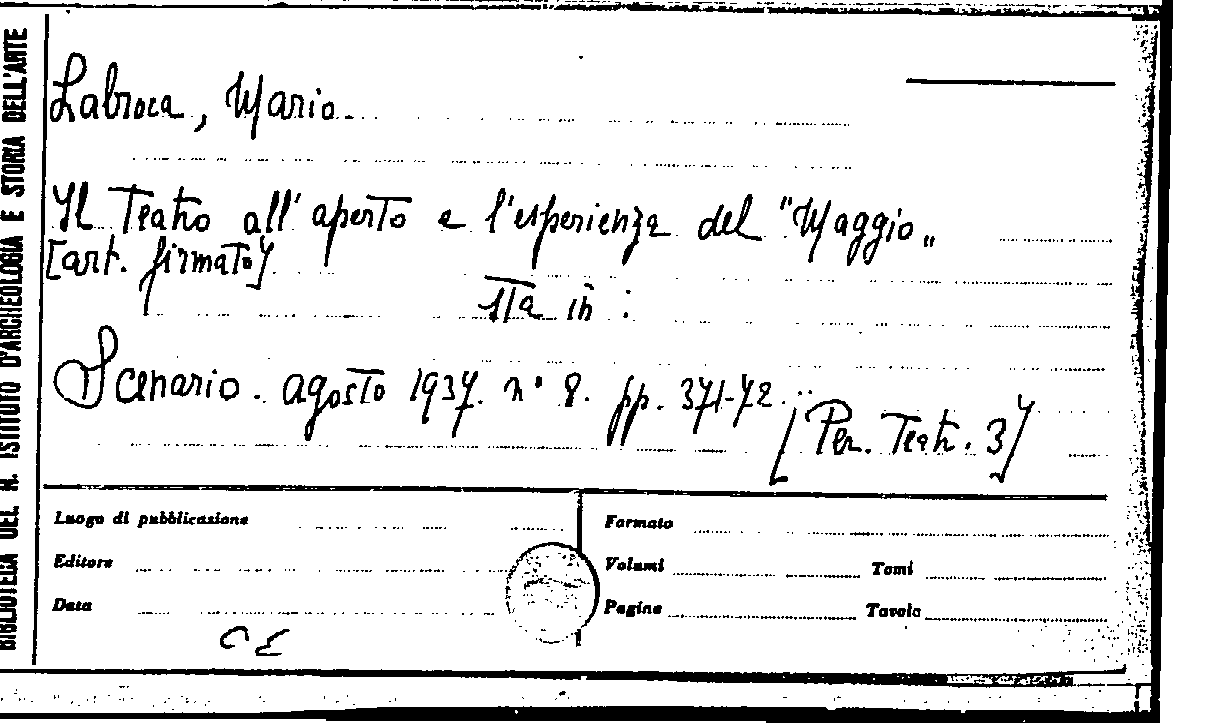 BIBLIOTECA DEL R. ISTITUTO D'ARCHEOLOGIA E STORIA DELL'ARTE
Labroca, Mario.
Il Teatro all'aperto e l'esperienza del "Maggio„
[art. firmato]
sta in:
Scenario. agosto 1937. n° 8. pp. 371-72.
[Per. Teatr. 3]
Luogo di pubblicazione
Editore
Data
Formato
Volumi Tomi
Pagine Tavole
CE